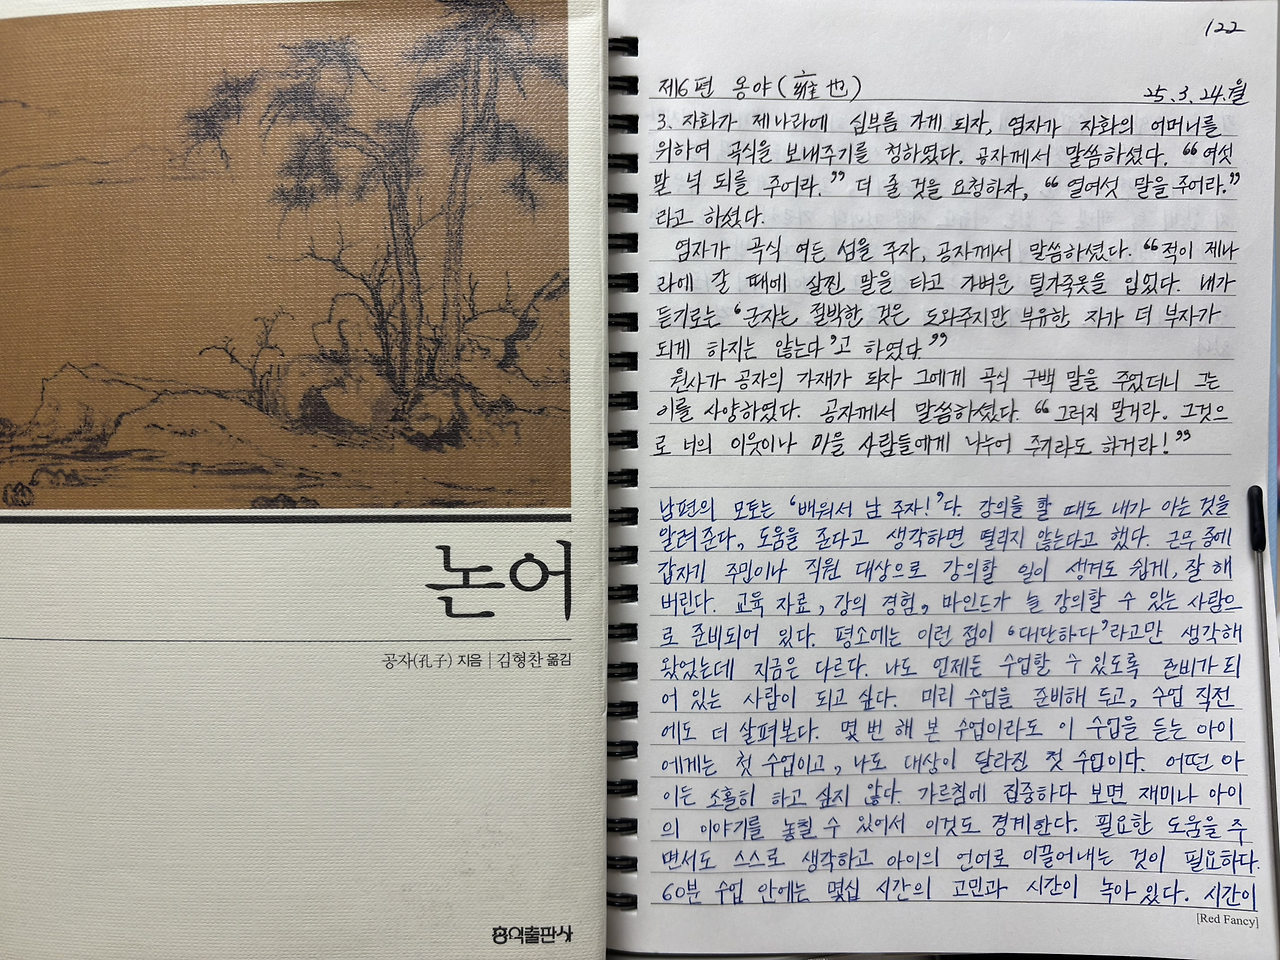 논어
공자(孔子) 지음 | 김형찬 옮김
홍익출판사
122
제6편 옹야(雍也)
25.3.24.월
3. 자화가 제나라에 심부름 가게 되자, 염자가 자화의 어머니를
위하여 곡식을 보내주기를 청하였다. 공자께서 말씀하셨다. "여섯
말 넉 되를 주어라." 더 줄 것을 요청하자, "열여섯 말을 주어라."
라고 하셨다.
염자가 곡식 여든 섬을 주자, 공자께서 말씀하셨다. "적이 제나
라에 갈 때에 살찐 말을 타고 가벼운 털가죽옷을 입었다. 내가
듣기로는 '군자는 절박한 것은 도와주지만 부유한 자가 더 부자가
되게 하지는 않는다'고 하였다."
원사가 공자의 가재가 되자 그에게 곡식 구백 말을 주었더니 그는
이를 사양하였다. 공자께서 말씀하셨다. "그러지 말거라. 그것으
로 너의 이웃이나 마을 사람들에게 나누어 주거라도 하거라!"
남편의 모토는 '배워서 남 주자!'다. 강의를 할 때도 내가 아는 것을
알려준다, 도움을 준다고 생각하면 떨리지 않는다고 했다. 근무 중에
갑자기 주민이나 직원 대상으로 강의할 일이 생겨도 쉽게, 잘 해
버린다. 교육 자료, 강의 경험, 마인드가 늘 강의할 수 있는 사람으
로 준비되어 있다. 평소에는 이런 점이 '대단하다'라고만 생각해
왔었는데 지금은 다르다. 나도 언제든 수업할 수 있도록 준비가 되
어 있는 사람이 되고 싶다. 미리 수업을 준비해 두고, 수업 직전
에도 더 살펴본다. 몇 번 해 본 수업이라도 이 수업을 듣는 아이
에게는 첫 수업이고, 나도 대상이 달라진 첫 수업이다. 어떤 아
이든 소홀히 하고 싶지 않다. 가르침에 집중하다 보면 재미나 아이
의 이야기를 놓칠 수 있어서 이것도 경계한다. 필요한 도움을 주
면서도 스스로 생각하고 아이의 언어로 이끌어내는 것이 필요하다.
60분 수업 안에는 몇십 시간의 고민과 시간이 녹아 있다. 시간이
[Red Fancy]